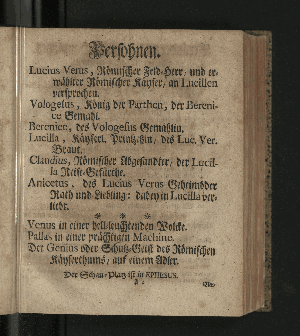 Persohnen.
Lucius Verus, Römischer Feld-Herr, und er-
wählter Römischer Käyser, an Lucillen
versprochen.
Vologesus, König der Parthen, der Bereni-
ce Gemahl.
Berenice, des Vologesus Gemahlin.
Lucilla, Käyserl. Printzeßin, des Luc. Ver.
Braut.
Claudius, Römischer Abgesandter, der Lucil-
la Reise-Gefährte.
Anicetus, des Lucius Verus Geheimbder
Rath und Liebling: dabey in Lucilla ver-
liebt.
* * *
Venus in einer hell-leuchtenden Wolcke.
Pallas in einer prächtigen Machine.
Der Genius oder Schutz-Geist des Römischen
Käyserthums, auf einem Adler.
Der Schau-Platz ist in EPHESUS.